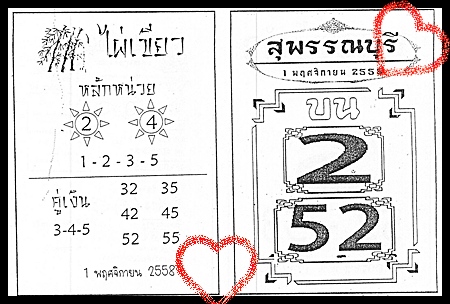 ไผ่เขียว
หลักหน่วย
2 4
1-2-3-5
คู่เงิน
3-4-5
32 35
42 45
52 55
1 พฤศจิกายน 2558
สุพรรณบุรี
1 พฤศจิกายน 2558
บน
2
52